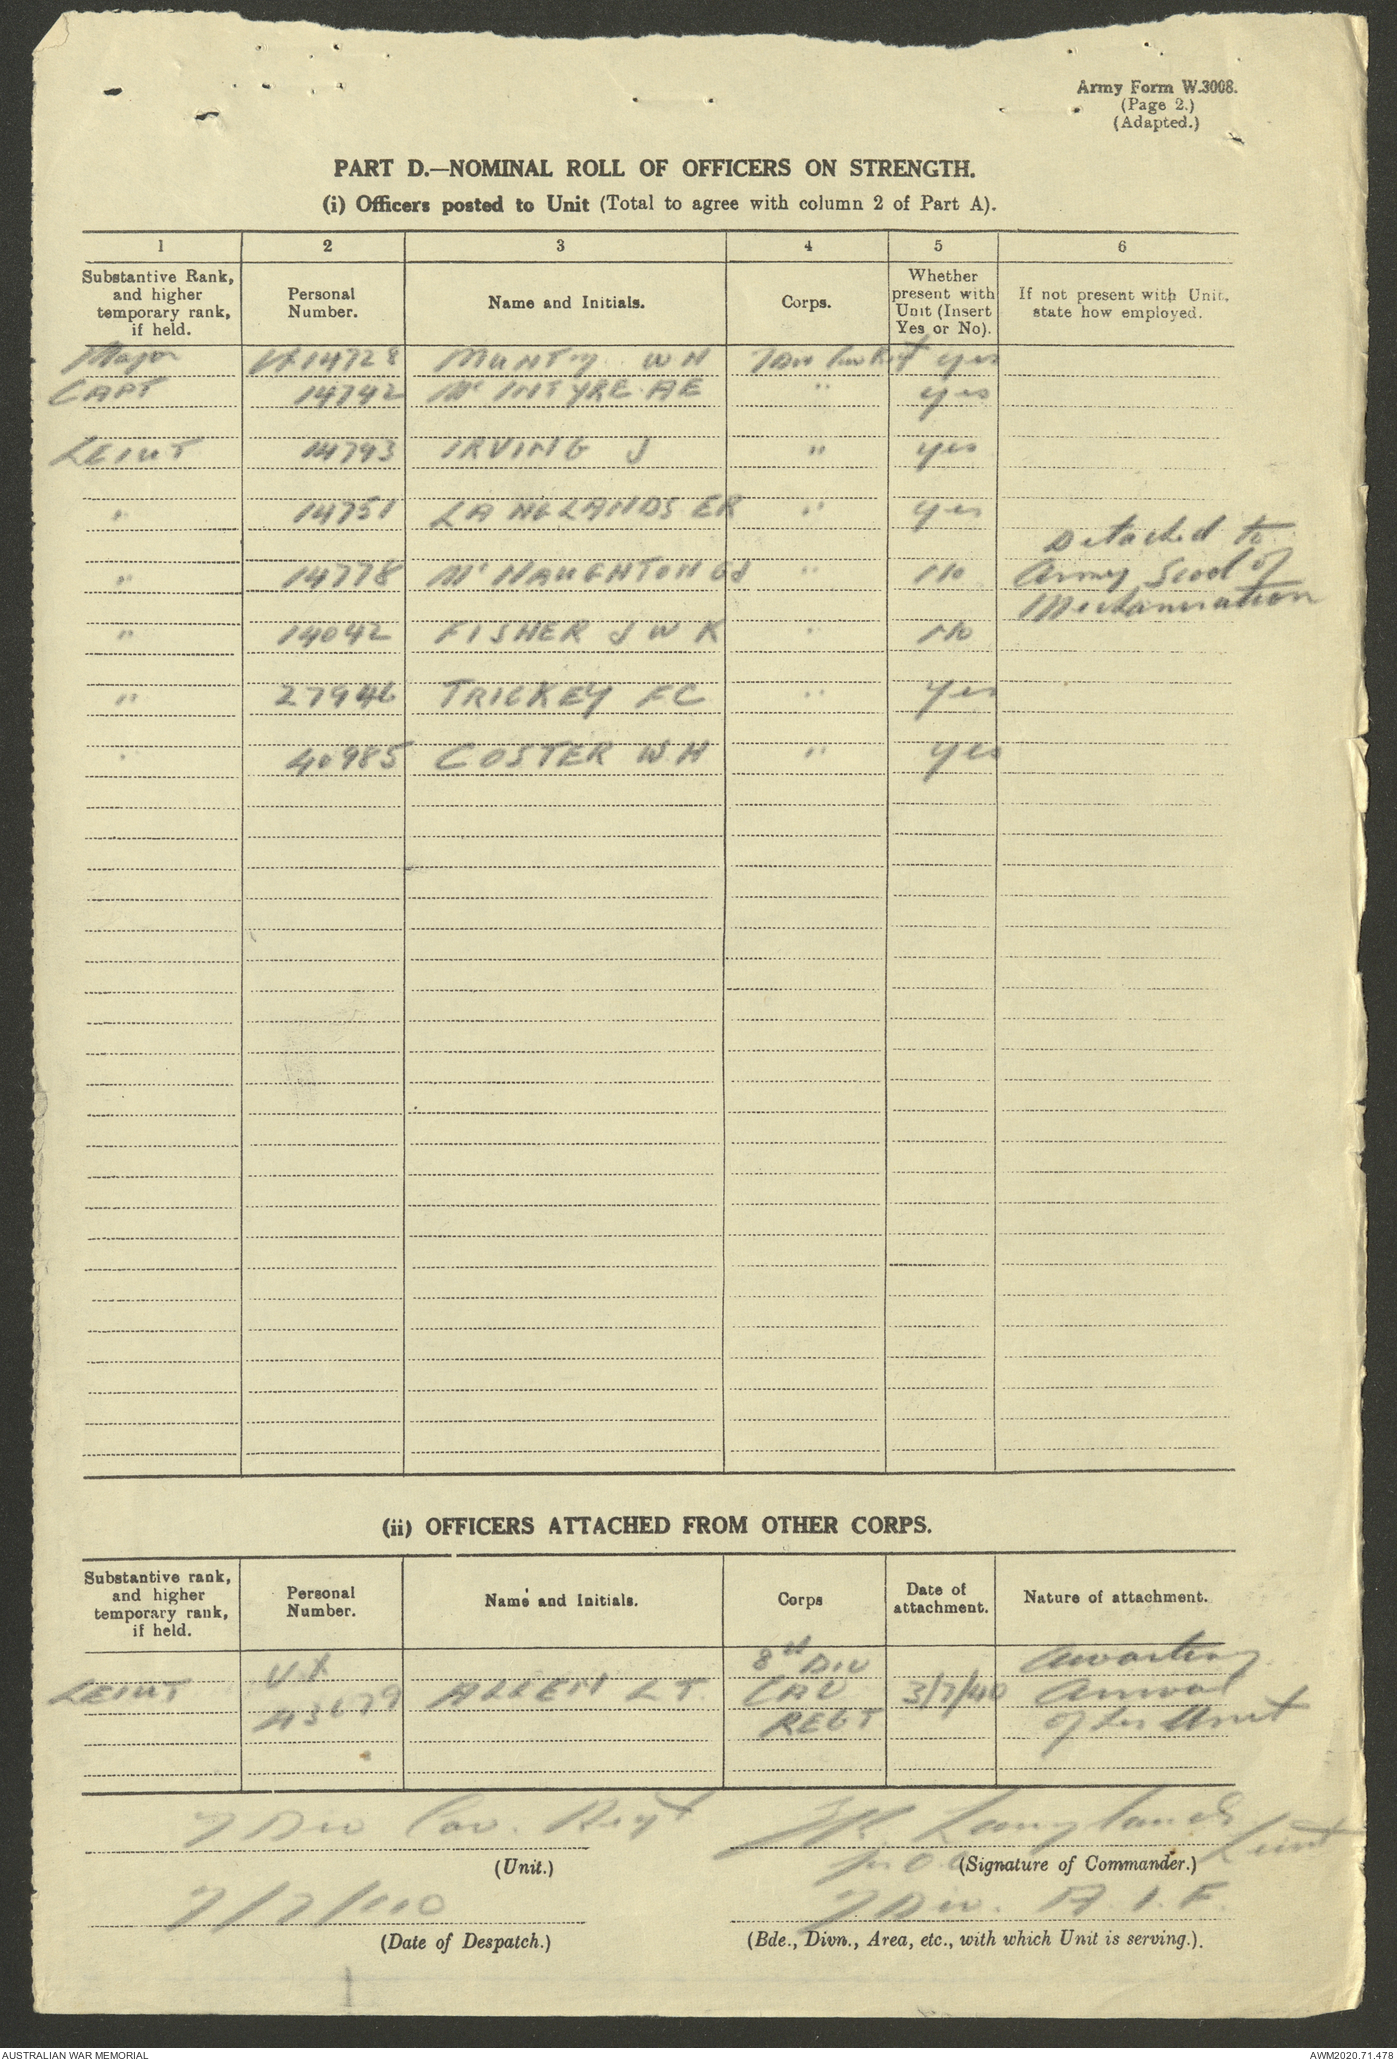 Army Form W.3008.
(Page 2.)
(Adapted.)
PART D.—NOMINAL ROLL OF OFFICERS ON STRENGTH.
(i) Officers posted to Unit (Total to agree with column 2 of Part A).
1 2 3 4 5 6
Substantive Rank, and higher temporary rank, if held. Personal Number. Name and Initials. Corps. Whether present with Unit (Insert Yes or No). If not present with Unit, state how employed.
Major VX14728 MUNTZ W N 7 Div Cav Regt yes
CAPT 14742 McINTYRE AE " yes
LEIUT 14793 IRVING J " yes
" 14751 LANGLANDS ER " yes
Detached to
" 14778 McNAUGHTON GJ " No Army Scool of
Mechanisation
" 14042 FISHER J W K " No
" 27946 TRICKEY FC " yes
" 40985 COSTER W.H " yes
(ii) OFFICERS ATTACHED FROM OTHER CORPS.
Substantive rank, and higher temporary rank, if held. Personal Number. Name and Initials. Corps Date of attachment. Nature of attachment.
VX 8th DIV Awaiting
LEIUT ALLEN LT. CAV 3/7/40 Arrival
REGT of his Unit
7 Div Cav. Regt Langlands Leiut
(Unit.) (Signature of Commander.)
7/7/40 7 Div. A.I.F.
(Date of Despatch.) (Bde., Divn., Area, etc., with which Unit is serving.).
AUSTRALIAN WAR MEMORIAL AWM2020.71.478